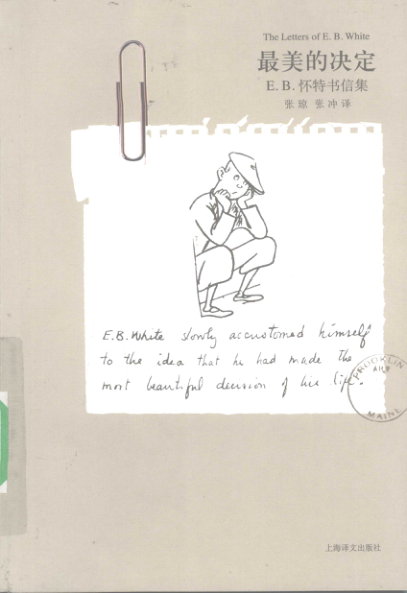 The Letters of E. B. White
最美的决定
E. B. 怀特书信集
张琼 张冲 译
E.B. White slowly accustomed himself
to the idea that he had made the
most beautiful decision of his life.
BROOKLIN
MAINE
上海译文出版社